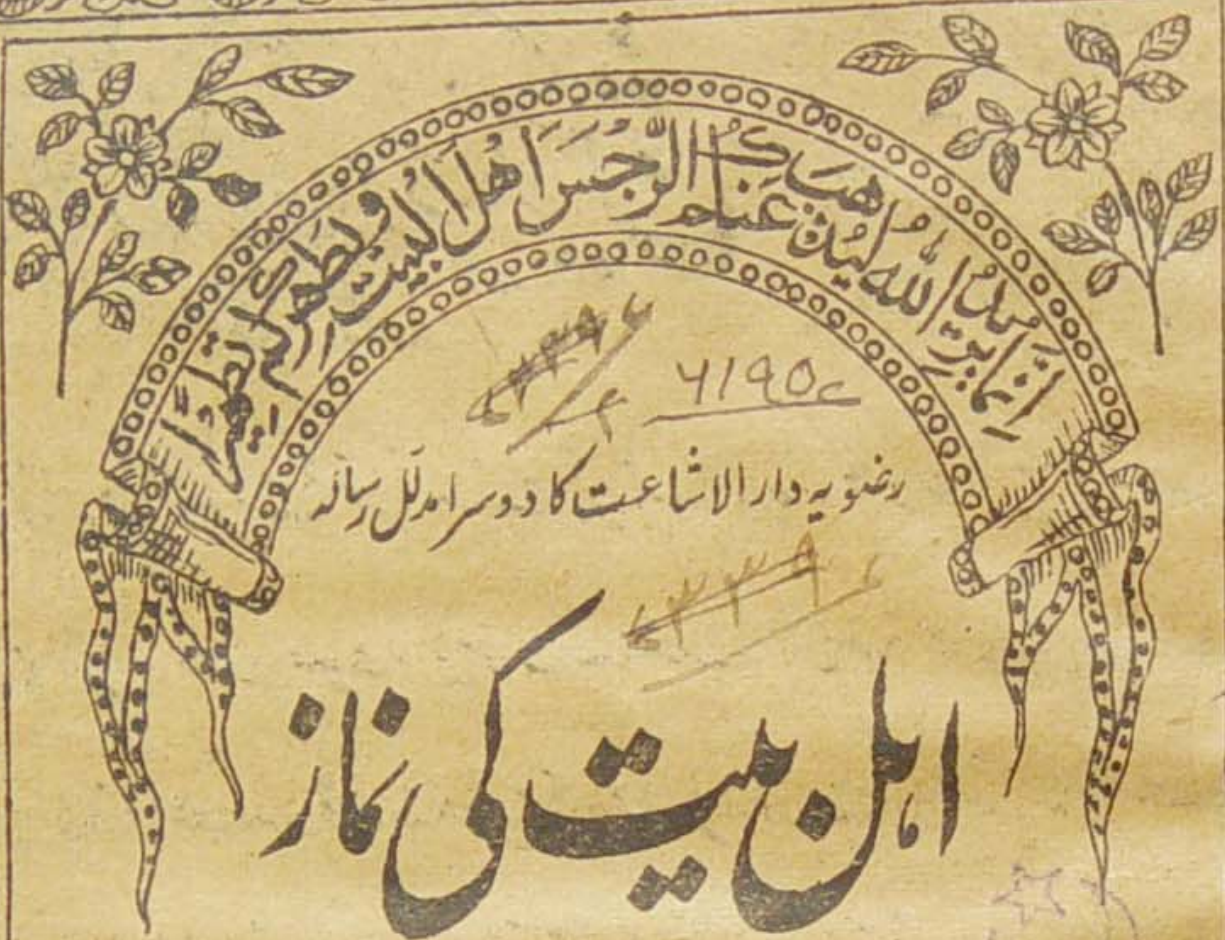 اِنَّمَا يُرِيدُ اللّٰهُ لِيُذْهِبَ عَنْكُمُ الرِّجْسَ اَهْلَ الْبَيْتِ وَيُطَهِّرَكُمْ تَطْهِيْرًا
رضویہ دار الاشاعت کا دوسرا مدلل رسالہ
اہل بیت کی نماز